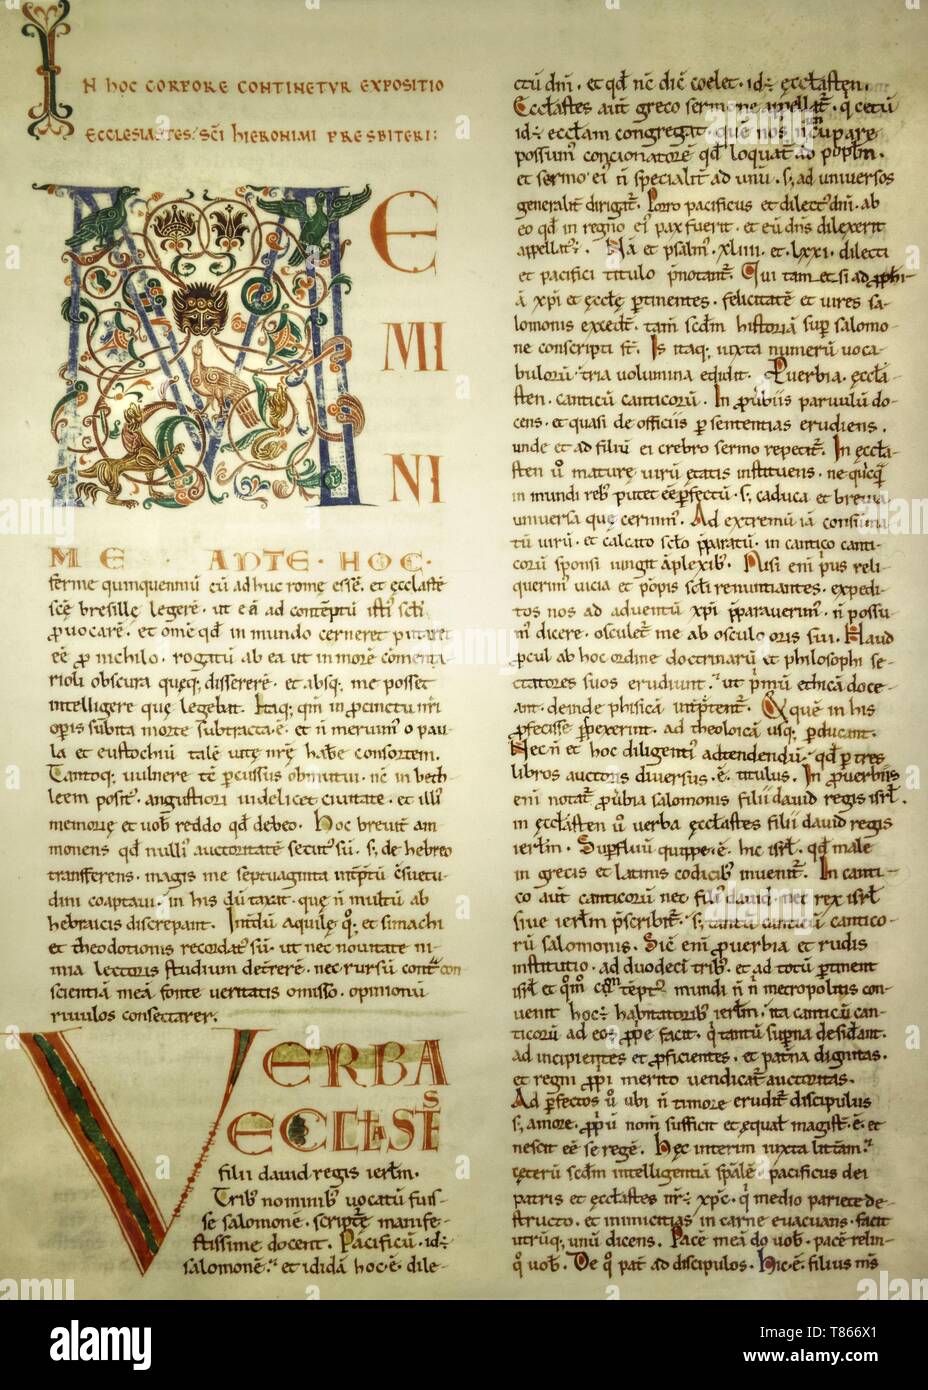 IN hOC CORPORE CONTINETVR EXPOSITIO
ECCLESIASTES SC̄I hIERONIMI PRESBITERI:
M E
MI
NI
ME ANTE · HOC ·
ferme quinquenniū cū adhuc rome essē. et eccl̄astē
sc̄ę bresillę legerē · ut eā ad contēptū isti' sc̄li
ꝓuocarē · et om̄e qd̄ in mundo cerneret putaret
eē ꝓ nichilo · rogatū ab ea ut in morē cōmenta-
rioli obscura quęq; dissererē · et absq; me posset
intelligere quę legebat. Itaq; qm̄ in ꝓcinctu nr̄i
opis subita morte subtracta ē · et n̄ meruim' o pau-
la et eustochiū talē uitę nr̄ę habe consortem.
Tantoq; uulnere tē ꝑcussus obmutui. nc̄ in beth-
leem posit' · angustiori uidelicet ciuitate · et illi'
memorię et uob̄ reddo qd̄ debeo. hoc breuit̄ am
monens qd̄ nulli' auctoritatē secut' sū · s; de hebreo
transferens · magis me septuaginta int̄p̄tū c̄suetu-
dini coaptaui · in his dū taxat · quę n̄ multū ab
hebraicis discrepant. Int̄dū aquilę q; et simachi
et theodotionis recordat' sū · ut nec nouitate ni-
mia lectoris studium det̄rerē · nec rursū cont̄ con
scientiā meā fonte ueritatis omisso · opinionū
riuulos consectarer.
VERBA
ECCL̄ASTS
filii dauid regis ierl̄m.
Trib' nominib' uocatū fuis-
se salomonē · scriptę manife-
stissime docent. Pacificū · id;
salomonē · et ididā hoc · ē · dile-
ctū dn̄i · et qd̄ nc̄ dic̄ coelet · id; ęccl̄asten.
Eccl̄astes aut̄ greco sermone appellat̄ · q cetū
id; eccl̄am congregat · quē nos n̄cupare
possum' concionatorē qd̄ loquat̄ ad popl̄m ·
et sermo ei' n̄ specialit̄ ad unū · s; ad uniuersos
generalit̄ dirigat̄. Porro pacificus et dilect' dn̄i · ab
eo qd̄ in regno ei' pax fuerit · et eū dn̄s dilexerit
appellat' · Nā et psalm' · xliiii · et · lxxi · dilecti
et pacifici titulo p̄notant̄. Qui tam et si ad ꝓphi-
ā xp̄i et ęccl̄ę ꝑtinentes · felicitatē et uires sa-
lomonis excedt̄ · tam̄ sc̄dm historiā sup̄ salomo-
ne conscripti st̄. Is itaq; iuxta numerū uoca-
bulorū · tria uolumina edidit. Puerbia · ęccl̄a-
sten · canticū canticorū. In ꝓub̄iis paruulū do-
cens · et quasi de officiis ꝑ sententias erudiens ·
unde et ad filiū ei crebro sermo repetit̄. In ęccl̄a-
sten u° maturę uirū ętatis instituens · ne quicq̄
in mundi reb' putet eē ꝑfectū · s; caduca et breuia
uniuersa quę cernim'. Ad extremū iā consūma-
tū uirū · et calcato sc̄lo p̄paratū · in cantico canti-
corū sponsi iungit amplexib'. Nisi eni p'us reli-
querim' uicia et pōpis sc̄li renuntiantes · expedi-
tos nos ad aduentū xp̄i p̄parauerim' · n̄ possu-
m' dicere · osculet̄ me ab osculo oris sui. Haud
ꝓcul ab hoc ordine doctrinarū et philosophi se-
ctatores suos erudiunt · ut p'mū ethicā doce-
ant · deinde phisicā int̄p̄tent̄. Et quē in his
ꝓfecisse ꝑspexerint · ad theologicā usq; ꝑducant ·
Nec n̄ et hoc diligenti' adtendendū · qd̄ ꝑ tres
libros auctoris diuersus · ē · titulus. In ꝓuerbiis
enī notat̄ ꝓub̄ia salomonis filii dauid regis isrl̄.
in ęccl̄asten u° uerba ęccl̄astes filii dauid regis
ierl̄m. Supfluū quippe · ē · hic isrl̄ · qd̄ male
in grecis et latinis codicib' inuenit̄. In canti-
co aut̄ canticorū nec fili' dauid · nec rex isrl̄
siue ierl̄m p̄scribit̄ · s; tantū canticū cantico-
rū salomonis. Sic enī ꝓuerbia et rudis
institutio · ad duodeci trib' · et ad totū ꝑtinent
isrl̄ et qm̊ cōtēpt' mundi n̄ n̄ metropolitis con-
uenit hoc; habitatorib' ierl̄m · ita canticū can-
ticorū ad eos ꝓpe facit · q tantū sup̄na desidant.
ad incipientes et ꝓficientes · et pat̄na dignitas ·
et regni ꝓp̄i merito uendicat̄ auctoritas.
Ad ꝑfectos u° ubi n̄ timore erudit̄ discipulus
s; amore · ꝓp̄iū nom̄ sufficit et ęqual magist̄ · ē · et
nescit eē se regē. Hęc interim iuxta litt̄am ·
cęterū sc̄dm intelligentiā sp̄alē · pacificus dei
patris et ęccl̄astes nr̄ · xp̄c · q medio pariete de-
structo · et inimicitias in carne euacuans · facit
utrūq; unū dicens. Pacē meā do uob̄ · pacē relin-
q uob̄ · De q pat̄ ad discipulos · hic · ē · filius m's
alamy
Image ID: T866X1
www.alamy.com